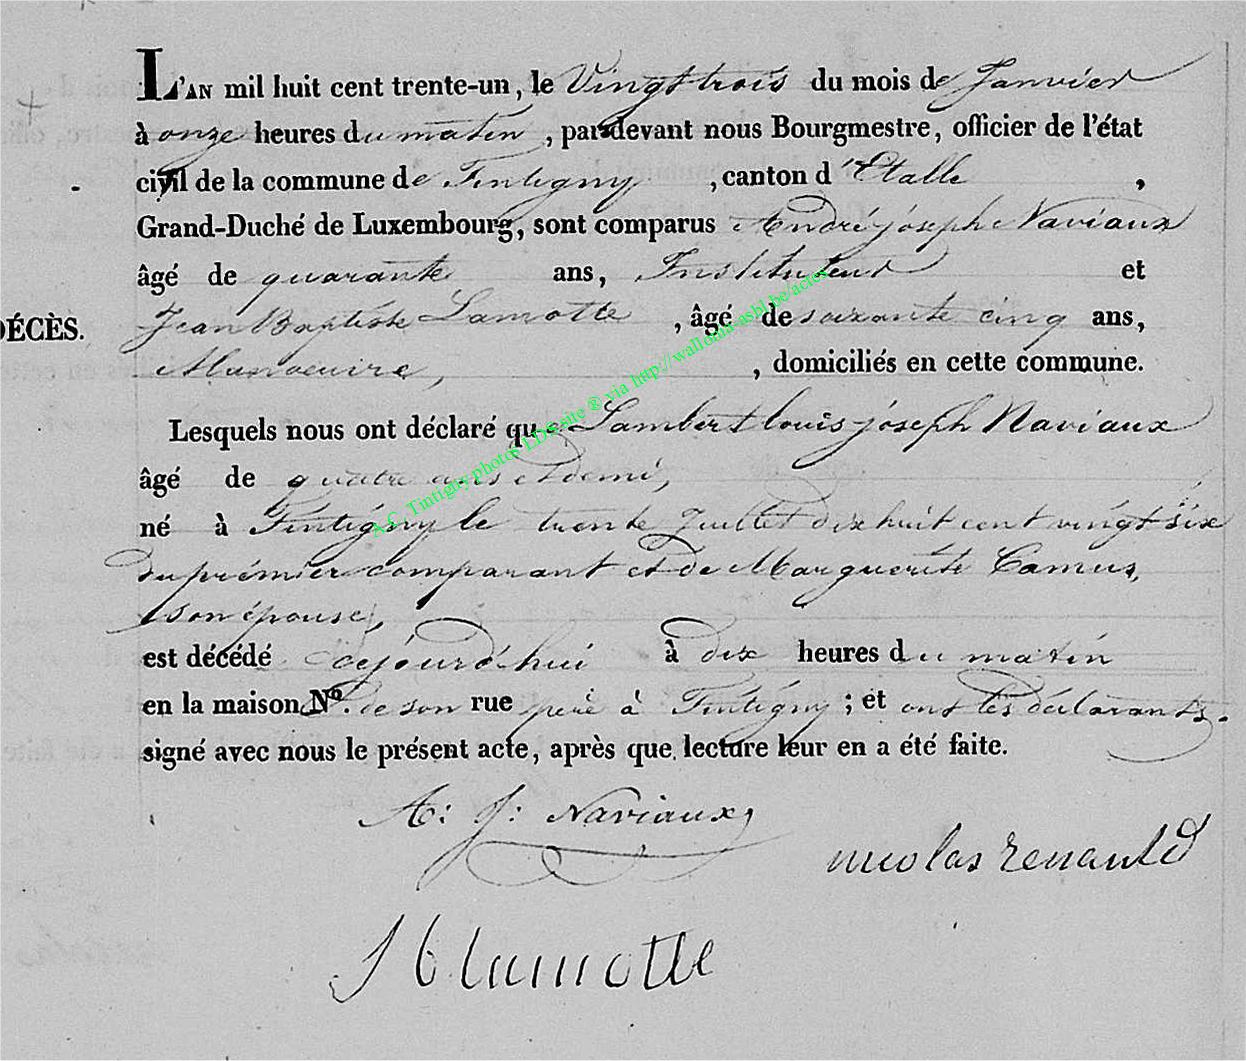 L'AN mil huit cent trente-un, le Vingt trois du mois de Janvier
à onze heures du matin, par-devant nous Bourgmestre, officier de l'état
civil de la commune de Tintigny, canton d'Etalle,
Grand-Duché de Luxembourg, sont comparus André joseph Naviaux
âgé de quarante ans, Instituteur et
DÉCÈS. Jean Baptiste Lamotte, âgé de soixante cinq ans,
Manoeuvre, , domiciliés en cette commune.
Lesquels nous ont déclaré que Lambert louis joseph Naviaux
âgé de quatre ans et demi,
né à Tintigny le trente Juillet dix huit cent vingt six
du prémier comparant et de Marguerite Camus,
son épouse,
est décédé aujourd'hui à dix heures du matin
en la maison No. de son rue père à Tintigny ; et ont les déclarants.
signé avec nous le présent acte, après que lecture leur en a été faite.
A: J: Naviaux,
nicolas renauld
J b lamotte
A.C. Tintigny photos LDS site ® via http://wallonia-asbl.be/actes